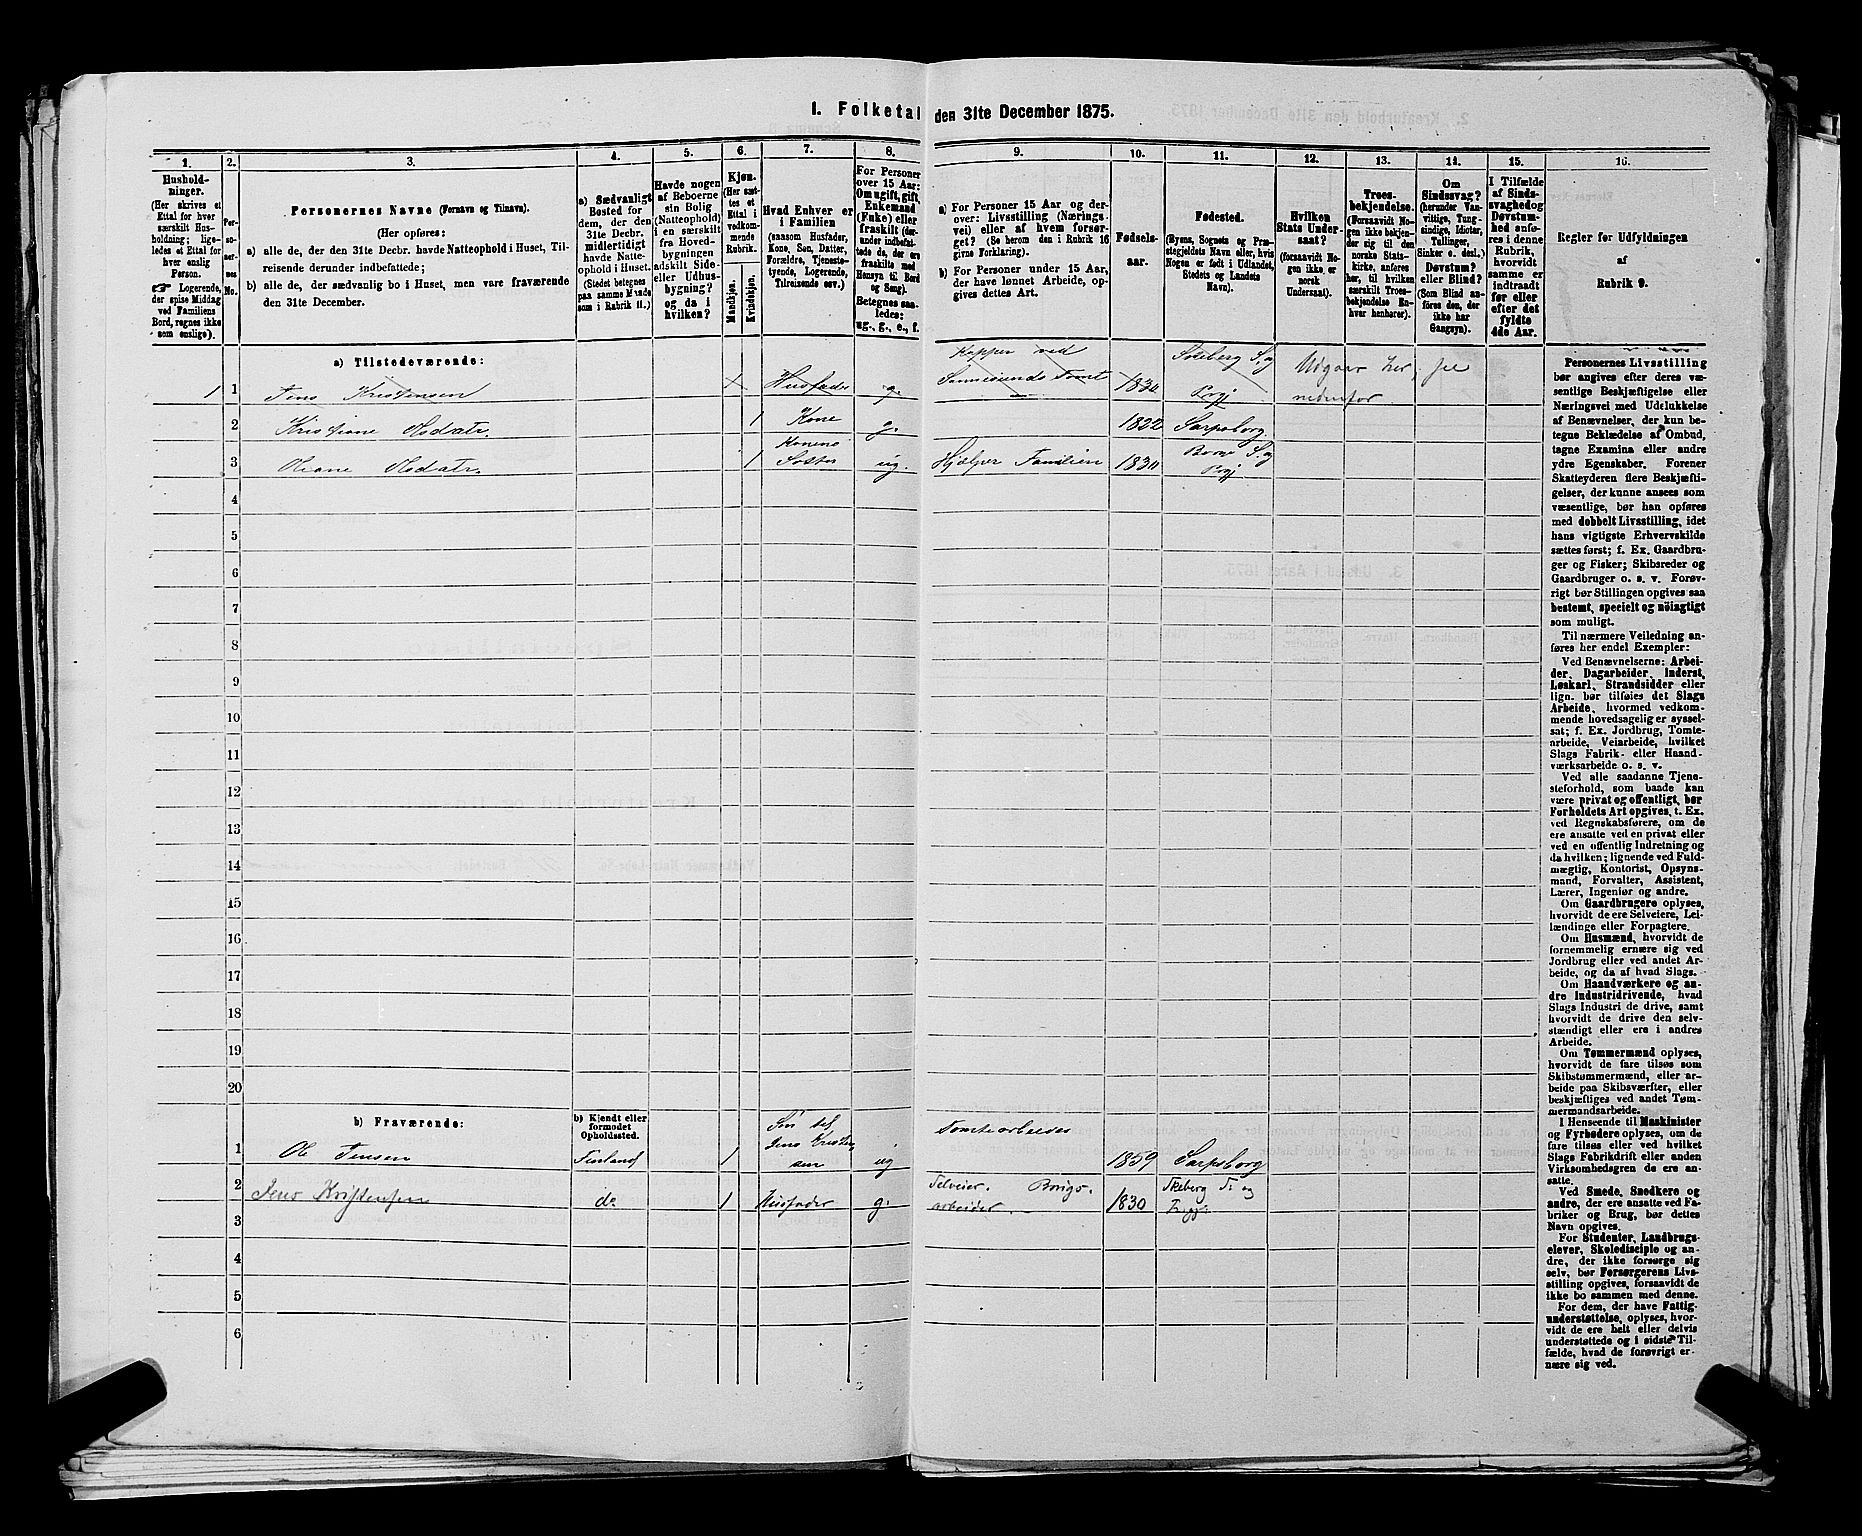 1. Folketal den 31te December 1875.
1. 2. 3. 4. 5. 6. 7. 8. 9. 10. 11. 12. 13. 14. 15. 16.
Hushold-
ninger.
(Her skrives et
Ettal for hver
særskilt Hus-
holdning; lige-
ledes et Ettal for
hver enslig
Person.
☞ Logerende,
der spise Middag
ved Familiens
Bord, regnes ikke
som enslige).
Per-
so-
ner-
nes
No.
Personernes Navne (Fornavn og Tilnavn).
(Her opføres:
a) alle de, der den 31te Decbr. havde Natteophold i Huset, Til-
reisende derunder indbefattede;
b) alle de, der sædvanlig bo i Huset, men vare fraværende
den 31te December.
a) Sædvanligt
Bosted for
dem, der den
31te Decbr.
midlertidigt
havde Natte-
ophold i Huset.
(Stedet betegnes
paa samme Maade
som i Rubrik 11.)
Havde nogen
af Beboerne
sin Bolig
(Natteophold)
i en særskilt
fra Hoved-
bygningen
adskilt Side-
eller Udhus-
bygning?
og da i
hvilken?
Kjøn.
(Her sæt-
tes et
Ettal i
vedkom-
mende
Rubrik.
Mandkjøn.
Kvindekjøn.
Hvad Enhver er
i Familien
(saasom Husfader,
Kone, Søn, Datter,
Forældre, Tjeneste-
tyende, Logerende,
Tilreisende osv.)
For Personer
over 15 Aar:
Om ugift, gift,
Enkemand
(Enke) eller
fraskilt (der-
under indbefat-
tede de, der ere
fraskilte med
Hensyn til Bord
og Seng).
Betegnes saa-
ledes:
ug., g., e., f.
a) For Personer 15 Aar og der-
over: Livsstilling (Nærings-
vei) eller af hvem forsør-
get? (Se herom den i Rubrik 16
givne Forklaring).
b) For Personer under 15 Aar,
der have lønnet Arbeide, op-
gives dettes Art.
Fødsels-
aar.
Fødested.
(Byens, Sognets og Præ-
stegjeldets Navn eller, hvis
Nogen er født i Udlandet,
Stedets og Landets
Navn).
Hvilken
Stats Under-
saat?
(forsaavidt No-
gen ikke er
norsk
Undersaat).
Troes-
bekjendelse.
(Forsaavidt No-
gen ikke bekjen-
der sig til den
norske Stats-
kirke, anføres
her, til hvilken
særskilt Troes-
bekjendelse En-
hver henhører).
Om
Sindssvag?
(herunder Van-
vittige, Tung-
sindige, Idioter,
Tullinger,
Sinker o. desl.)
Døvstum?
eller Blind?
(Som Blind an-
føres den, der
ikke har
Gangsyn).
I Tilfælde
af Sinds-
svaghed og
Døvstum-
hed anfø-
res i denne
Rubrik,
hvorvidt
samme er
indtraadt
før eller
efter det
fyldte
4de Aar.
Regler for Udfyldningen
af
Rubrik 9.
a) Tilstedeværende:
1 1 Jens Kristensen Husfader g. Sannesunds Tomt Prgj nedenfor
2 Kristiane Asdatr. 1 Kone g. 1822 Sarpsborg
Konens
3 Oleane Asdatr. 1 Søster ug. Hjælper Familien 1834 Borge S. og
Prgj
4
5
6
7
8
9
10
11
12
13
14
15
16
17
18
19
20
b) Fraværende:
b) Kjendt eller
formodet
Opholdssted.
Søn til
Jens Kristen
sen
Tomtearbeider
1 Ole Jensen Finland 1 ug 1859 Sarpsborg
2 Jens Kristensen do. 1 Husfader g. Selveier. Brugs-
arbeider. 1830 Skeberg S. og
Prgj.
3
4
5
6
Personernes Livsstilling
bør angives efter deres væ-
sentlige Beskjæftigelse eller
Næringsvei med Udelukkelse
af Benævnelser, der kun be-
tegne Beklædelse af Ombud,
tagne Examina eller andre
ydre Egenskaber. Forener
Skatteyderen flere Beskjæfti-
gelser, der kunne ansees som
væsentlige, bør han opføres
med dobbelt Livsstilling, idet
hans vigtigste Erhvervskilde
sættes først; f. Ex. Gaardbru-
ger og Fisker; Skibsreder og
Gaardbruger o. s. v. Forøv-
rigt bør Stillingen opgives saa
bestemt, specielt og nøiagtigt
som muligt.
Til nærmere Veiledning an-
føres her endel Exempler:
Ved Benævnelserne: Arbei-
der, Dagarbeider, Inderst,
Løskarl, Strandsidder eller
lign. bør tilføies det Slags
Arbeide, hvormed vedkom-
mende hovedsagelig er syssel-
sat; f. Ex. Jordbrug, Tomte-
arbeide, Veiarbeide, hvilket
Slags Fabrik- eller Haand-
værksarbeide o. s. v.
Ved alle saadanne Tjene-
steforhold, som baade kan
være privat og offentligt, bør
Forholdets Art opgives, t. Ex.
ved Regnskabsførere, om de
ere ansatte ved en privat eller
ved en offentlig Indretning og
da hvilken; lignende ved Fuld-
mægtig, Kontorist, Opsyns-
mand, Forvalter, Assistent,
Lærer, Ingeniør og andre.
Om Gaardbrugere oplyses,
hvorvidt de ere Selveiere, Lei-
lændinge eller Forpagtere.
Om Husmænd, hvorvidt de
fornemmelig ernære sig ved
Jordbrug eller ved andet Ar-
beide, og da af hvad Slags.
Om Haandværkere og an-
dre Industridrivende, hvad
Slags Industri de drive, samt
hvorvidt de drive den selv-
stændigt eller ere i andres
Arbeide.
Om Tømmermænd oplyses,
hvorvidt de fare tilsøs som
Skibstømmermænd, eller ar-
beide paa Skibsværfter, eller
beskjæftiges ved andet Tøm-
mermandsarbeide.
I Henseende til Maskinister
og Fyrbødere oplyses, om de
fare tilsøs eller ved hvilket
Slags Fabrikdrift eller anden
Virksomhedsgren de ere an-
satte.
Ved Smede, Snedkere og
andre, der ere ansatte ved Fa-
briker og Brug, bør dettes
Navn opgives.
For Studenter, Landbrugs-
elever, Skoledisciple og an-
dre, der ikke forsørge sig
selv, bør Forsørgerens Livs-
stilling opgives, forsaavidt de
ikke bo sammen med denne.
For dem, der have Fattig-
understøttelse, oplyses, hvor-
vidt de ere helt eller delvis
understøttede og i sidste Til-
fælde, hvad de forøvrigt er-
nære sig ved.